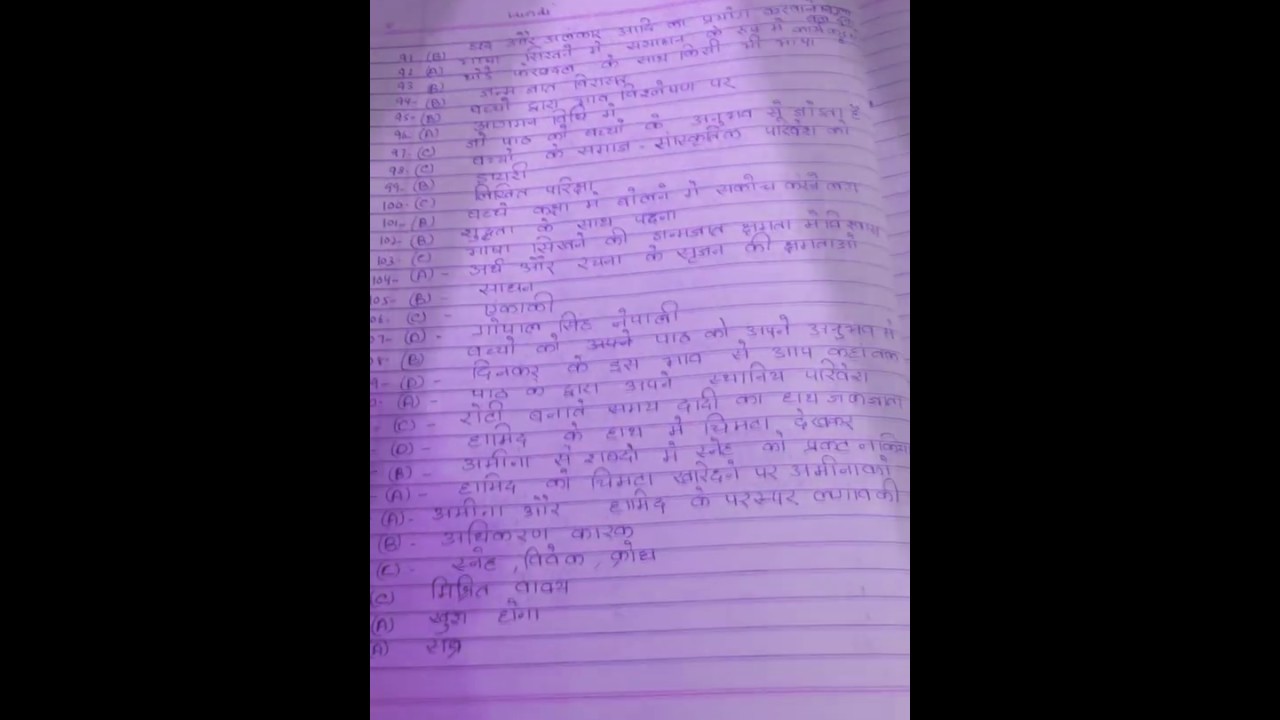 Hindi
91 (B) छंद और अलंकार आदि का प्रयोग करवाने
92 (A) भाषा सिखने में संसाधन के रूप में कार्य
93 (B) थोड़े फेरबदल के साथ किसी भी भाषा
94- (B) जन्म जात विरासत
95- (B) बच्चों द्वारा भाव विश्लेषण पर
96- (A) आगमन विधि में
97- (C) जो पाठ को बच्चों के अनुभव से जोड़ता है
98- (C) बच्चों के समाज - सांस्कृतिक परिवेश को
99- (B) डायरी
100- (C) लिखित परिक्षा
101- (A) बच्चे कक्षा में बोलने में संकोच करने लगे
102- (B) शुद्धता के साथ पढ़ना
103- (C) भाषा सिखने की जन्मजात क्षमता में विश्वास
104- (A) - अर्थ और रचना के सृजन की क्षमताओं
05- (B) - साधन
06- (C) - एकाकी
07- (D) - गोपाल सिंह नेपाली
(B) बच्चों को अपने पाठ को अपने अनुभव से
(D) - दिनकर के इस भाव से आप कहा तक
(A) - पाठ के द्वारा अपने स्थानिय परिवेश
- (C) - रोटी बनाते समय दादी का हाथ जल जाता
- (D) - हामिद के हाथ में चिमटा देखकर
- (B) - अमीना से शब्दों में स्नेह को प्रकट न किया
- (A) - हामिद को चिमटा खरिदने पर अमीना को
(A) - अमीना और हामिद के परस्पर लगाव की
(B) - अधिकरण कारक
(C) - स्नेह, विवेक, क्रोध
(C) मिश्रित वाक्य
(A) खुश होना
(A)